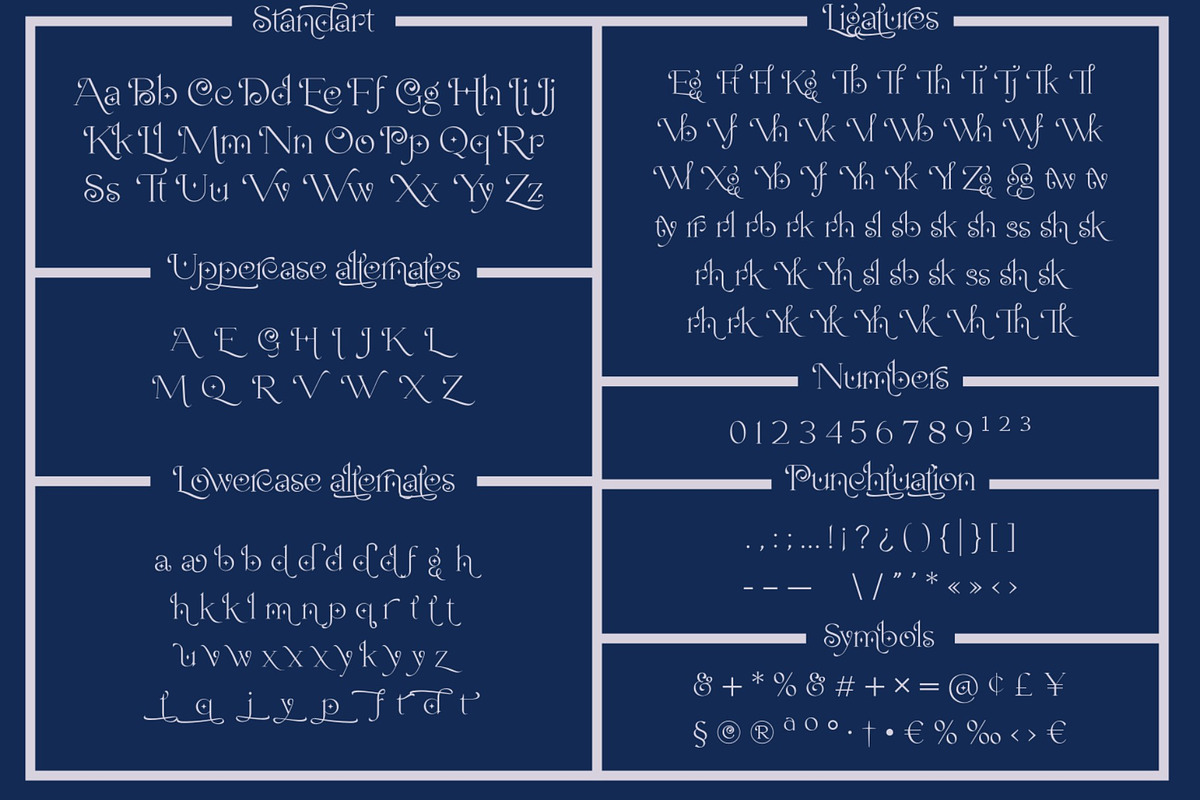 Standart
Aa Bb Cc Dd Ee Ff Gg Hh Ii Jj
Kk Ll Mm Nn Oo Pp Qq Rr
Ss Tt Uu Vv Ww Xx Yy Zz
Uppercase alternates
A E G H I J K L
M Q R V W X Z
Lowercase alternates
a a b b d d d d f g h
h k k l m n p q r t t t
u v w x x x y k y y z
t q j y p f r d t
Ligatures
Eg Ff Fl Kg Tb Tf Th Ti Tj Tk Tl
Vb Vf Vh Vk Vl Wb Wh Wf Wk
Wl Xg Yb Yf Yh Yk Yl Zg gg tw tv
ty rr rl rb rk rh sl sb sk sh ss sh sk
rh rk Yk Yh sl sb sk ss sh sk
rh rk Yk Yk Yh Vk Vh Th Tk
Numbers
0 1 2 3 4 5 6 7 8 9 ¹ ² ³
Punchtuation
. , : ; … ! ¡ ? ¿ ( ) { | } [ ]
- – — \ / " ' * « » ‹ ›
Symbols
& + * % & # + × = @ ¢ £ ¥
§ © ® ª º ° · † • € % ‰ ‹ › €